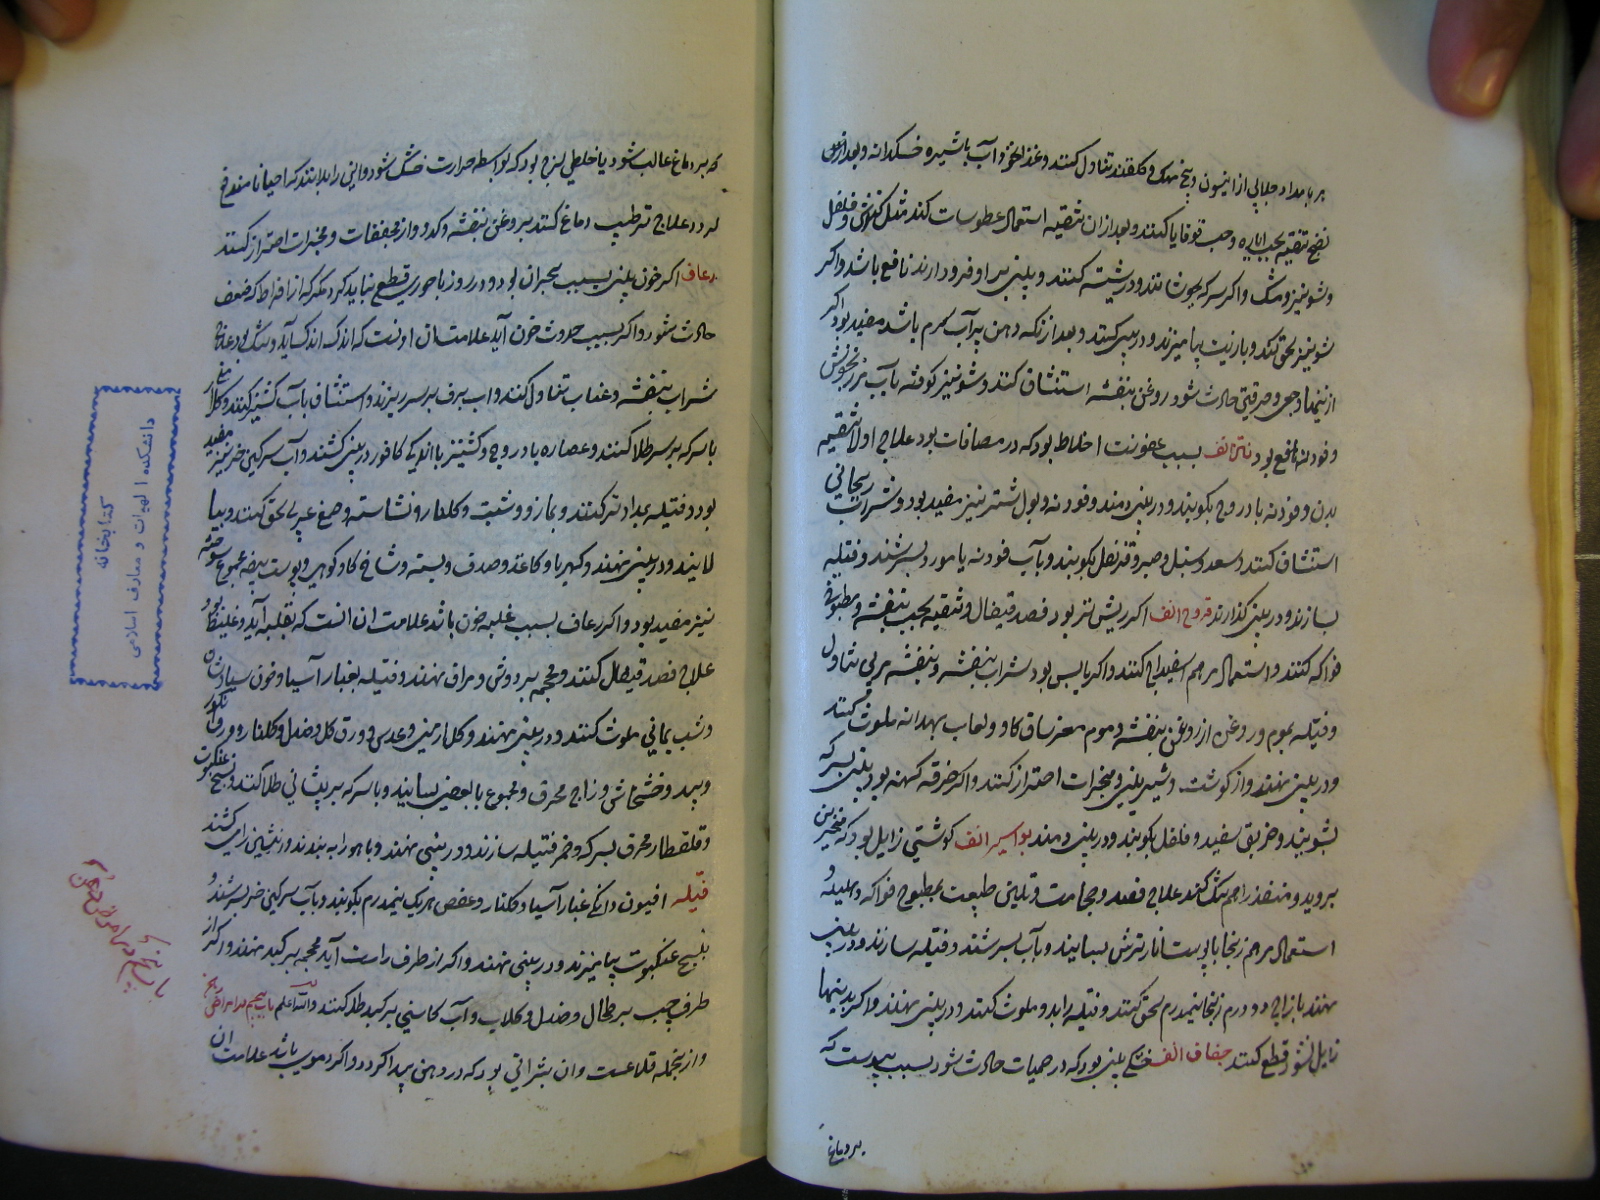 هر بامداد جلابی از انیسون و بیخ مهک و گلقند تناول کنند و غذا نخود آب با شیره خسکدانه و بعد از
نضج تنقیه بحب ایاره و حب قوقایا کنند و بعد از ان تنقیه استعمال عطوسات کنند مثل کندش و فلفل
و شونیز و مشک و اگر سرکه بجوشانند و در شیشه کنند و بینی بر او فرو دارند نافع باشد و اگر
شونیز سحق کنند و با زیت بیامیزند و در بینی کنند و بعد از آنکه دهن پر آب گرم باشد مفید بود و اگر
از اینها وجعی و حرقتی حادث شود روغن بنفشه استنشاق کنند و شونیز کوفته بآب مرزنجوش
و فودنه نافع بود نتن انف بسبب عفونت اخلاط بود که در مصافات بود علاج اولا تنقیه
بدن و فودنه بادروج بکوبند و در بینی دمند و فودنه و بول شتر نیز مفید بود و شراب ریحانی
استنشاق کنند و سعد و سنبل و صبر و قرنفل بکوبند و بآب فودنه یا مورد بسرشند و فتیله
بسازند و در بینی گذارند قروح انف اگر ریش تر بود فصد قیفال و تنقیه بحب بنفشه و مطبوخ
فواکه کنند و استعمال مرهم اسفیداج کنند و اگر یابس بود شراب بنفشه و بنفشه مربی تناول کنند
و فتیله بموم و روغن از روغن بنفشه و موم مغز ساق گاو و لعاب بهدانه ملوث
و در بینی نهند و از گوشت و شیرینی و مبخرات احتراز کنند و اگر خرقه کهنه بود بینی بسرکه
بشویند و خربق سفید و فلفل بکوبند و در بینی دمند بواسیر انف گوشتی زاید بود که در منخرین
بروید و منفذ را هم تنگ کند علاج فصد و حجامت و تلیین طبیعت بمطبوخ فواکه و هلیله و
استعمال مرهم زنجار با پوست انار ترش بسایند و بآب بسرشند و فتیله سازند و در بینی
نهند یا زاج دو درم زنجار نیمدرم سحق کنند و فتیله را بدو ملوث کنند و در بینی نهند و اگر بدینها
زایل نشود قطع کنند جفاف الف خشکی بینی بود که در حمیات حادث شود بسبب یبوست که
بر دماغ
که بر دماغ غالب شود یا خلطی لزج بود که بواسطه حرارت خشک شود و این را بلابتدکه احیانا مندفع
گردد علاج ترطیب دماغ کنند بروغن بنفشه و کدو و از مجففات و مبخرات احتراز کنند
رعاف اگر خون بینی بسبب بحران بود و در روز باحوری قطع نباید کرد مگر که از افراط که ضعف
حادث شود و اگر بسبب حدوث خون آید علامت ان اونست که اندک اندک آید و تنک بود علاج
شراب بنفشه و عناب تناول کنند و آب برف بر سر ریزند و استنشاق بآب گشنیز کنند و گلاب
با سرکه بر سر طلا کنند و عصاره بادروج و گشنیز با اندک کافور در بینی کشند و آب سرگین خر نیز مفید
بود و فتیله بمداد تر کنند و بمازو و شبت و گلنار و نشاسته و صمغ عربی سحق کنند و بیا
لایند و در بینی نهند و کهربا و کاغذ و صدف و بسته و شاخ گاو کوهی و پوست بیضه مجموع سوخته
نیز مفید بود و اگر رعاف بسبب غلبه خون باشد علامت ان انست که بغلبه آید و غلیظ بود
علاج فصد قیفال کنند و محجمه بر دوش و مراق نهند و فتیله بغبار آسیا و خون سیاوشان
و شب یمانی ملوث کنند و در بینی نهند و گل ارمنی و عدس و ورق گل و صندل و گلنار و ورق
وبید و خشخاش و زاج محرق و مجموع یا بعضی بسایند و با سرکه بر پیشانی طلا کنند و نسج عنکبوت
و قلقطار محرق بسرکه و خمر فتیله سازند و در بینی نهند و باهو را به بندند و انثیین را می کشند
فتیله افیون دانگی غبار آسیا و گلنار و عفص هر یک نیمدرم بکوبند و بآب سرگین خر بسرشند و
بنسیج عنکبوت بیامیزند و در بینی نهند و اگر از طرف راست آید محجمه بر کبد نهند و اگر از
طرف چپ بر طحال و صندل و گلاب و آب کاسنی بر کبد طلا کنند والله اعلم باب پنجم در امراض
و از جمله قلاعست و ان بثراتی بود که در دهن پیدا گردد و اگر دموی باشد علامت ان
دانشکده الهیات و معارف اسلامی
کتابخانه
باب پنجم در امراض دهن